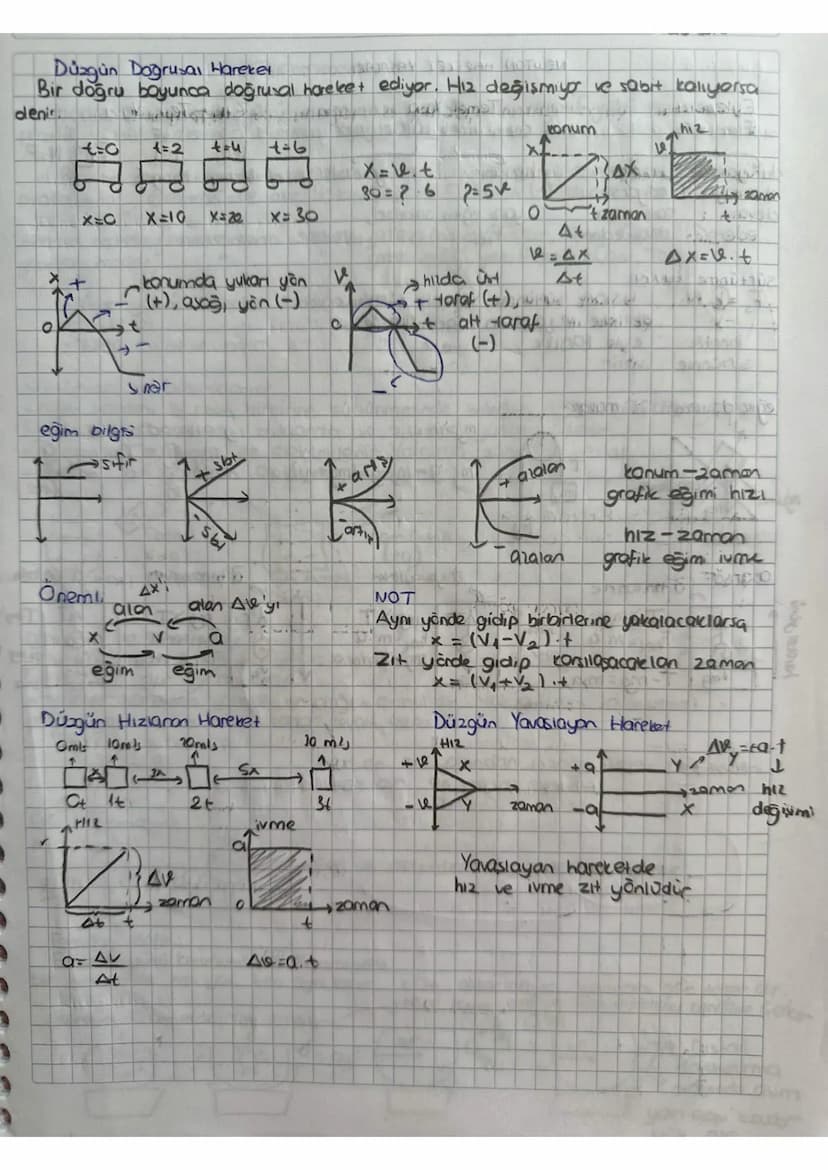 Düzgün Doğrusal Hareket
Bir doğru boyunca doğrusal hareket ediyor. Hız değişmiyor ve sabit kalıyorsa
denir.
t=0 t=2 t=4 t=6
x=0 x=10 x=20 x=30
x=v.t
30=? 6 ?=5v
konum
x
Δx
0 t zaman
Δt
v=Δx
Δt
hız
v
zaman
t
Δx=v.t
x + konumda yukarı yön
- (+), aşağı yön (-)
0 t
-
v hızda üst
+ taraf (+),
0 t alt taraf
(-)
-
eğim bilgisi
sıfır
+ sbt
- sbt
+ artış
- artış
+ azalan
- azalan
konum-zaman
grafik eğimi hızı
hız-zaman
grafik eğim ivme
Önemli
Δx'i
alan alan Δv'yi
x v a
eğim eğim
NOT
Aynı yönde gidip birbirlerine yakalacaklarsa
x=(V₁-V₂).t
Zıt yönde gidip karşılaşacakları zaman
x=(V₁+V₂).t
Düzgün Hızlanan Hareket
0m/s 10m/s 20m/s 30 m/s
x 3x 5x
0t 1t 2t 3t
Hız
v
Δv
zaman
Δt t
a=Δv
Δt
ivme
a
0 zaman
t
Δv=a.t
Düzgün Yavaşlayan Hareket
Hız
+v x
-v y zaman
+a y
zaman
-a x
Δv_y=+a.t
hız
değişimi
Yavaşlayan harekette
hız ve ivme zıt yönlüdür